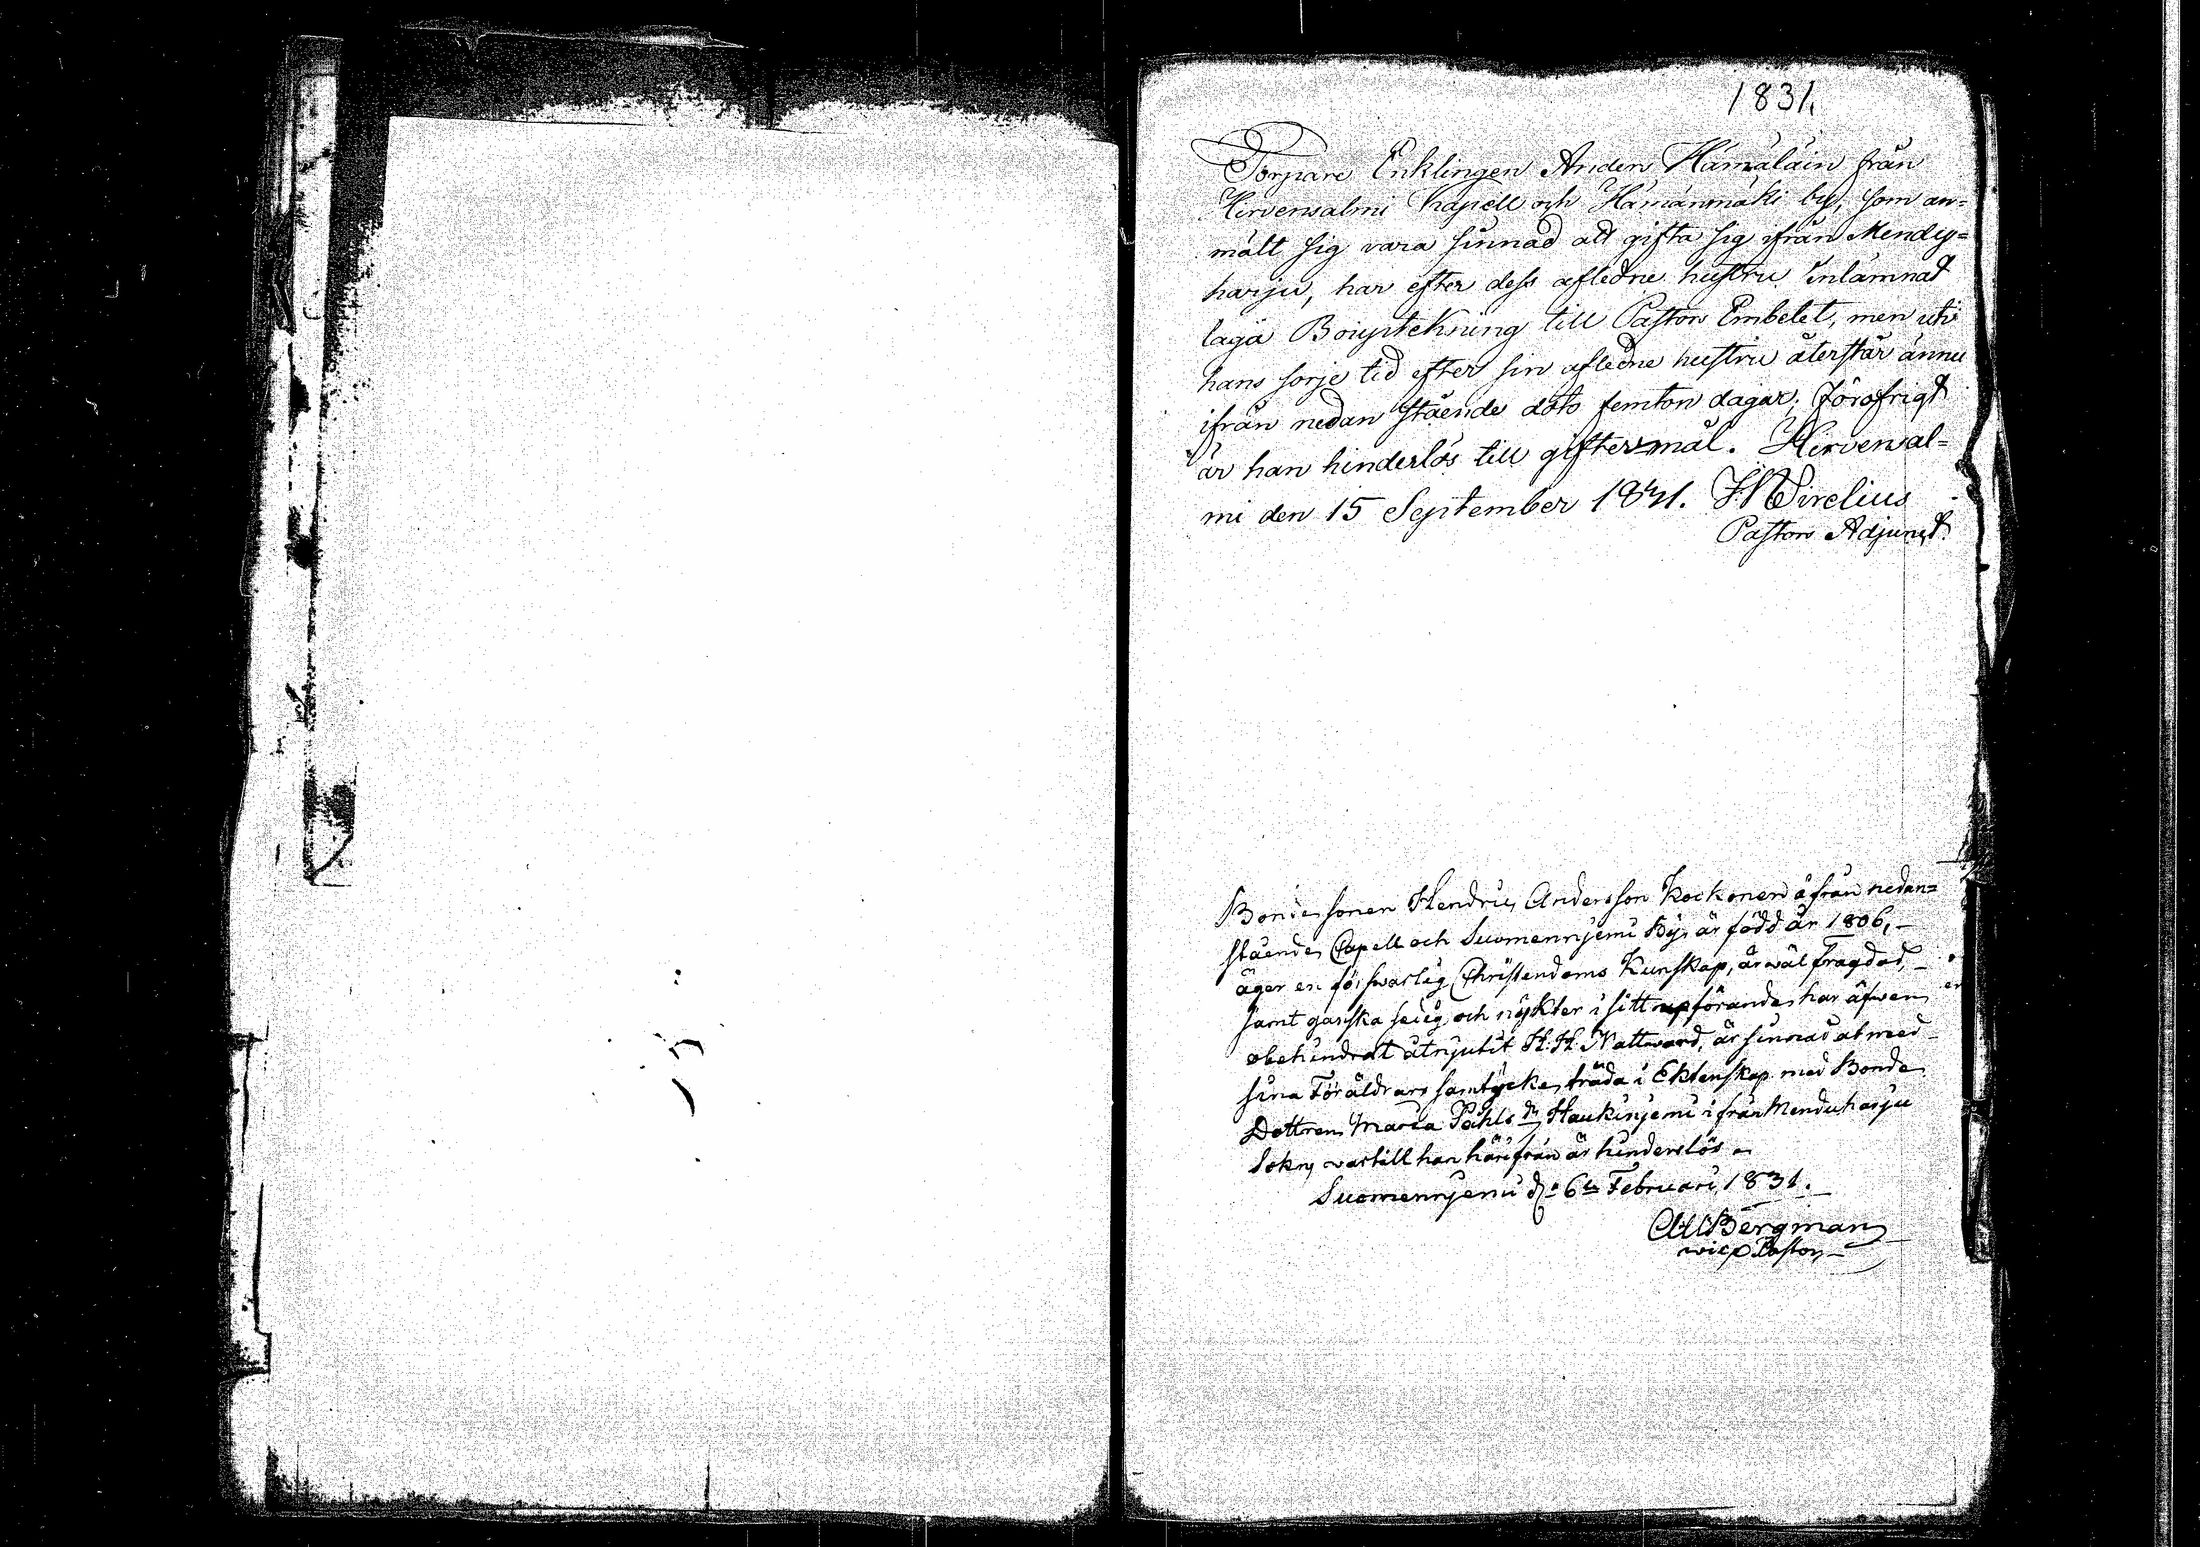 1831.
Torpare Enklingen Anders Hämäläin från
Hirvensalmi Kapell och Hämänmäki by, som an=
mält sig vara sinnad att gifta sig ifrån Mendy=
harju, har efter dess afledne hustru inlämnat
laga Bouptekning till Pastors Embetet, men uti
hans sorje tid efter sin afledne hustru återstår ännu
ifrån nedan stående dato femton dagar; föröfrigt
är han hinderlös till giftersmål. Hirvensal=
mi den 15 September 1831. Virelius
Pastors Adjunct.
Bonde sonen Hendric Andersson Kockonen ifrån nedan=
stående Capell och Suomennjemi By, är född år 1806,
äger en förswarlig Christendoms Kunskap, är wäl fragdad,
samt ganska sedig och nykter i sitt upförande har äfwen
obehindrat åtnjutit H. H. Nattward, är sinnad at med
sina Föräldrars samtycke träda i Ektenskap med Bonde
Dottren Maria Påhls dr Haukinjemi ifrån Menduharju
Sokn, vartill han härifrån är hinderslös
Suomennjemi dn 6te Februari 1831.
Bergman
vice Pastor